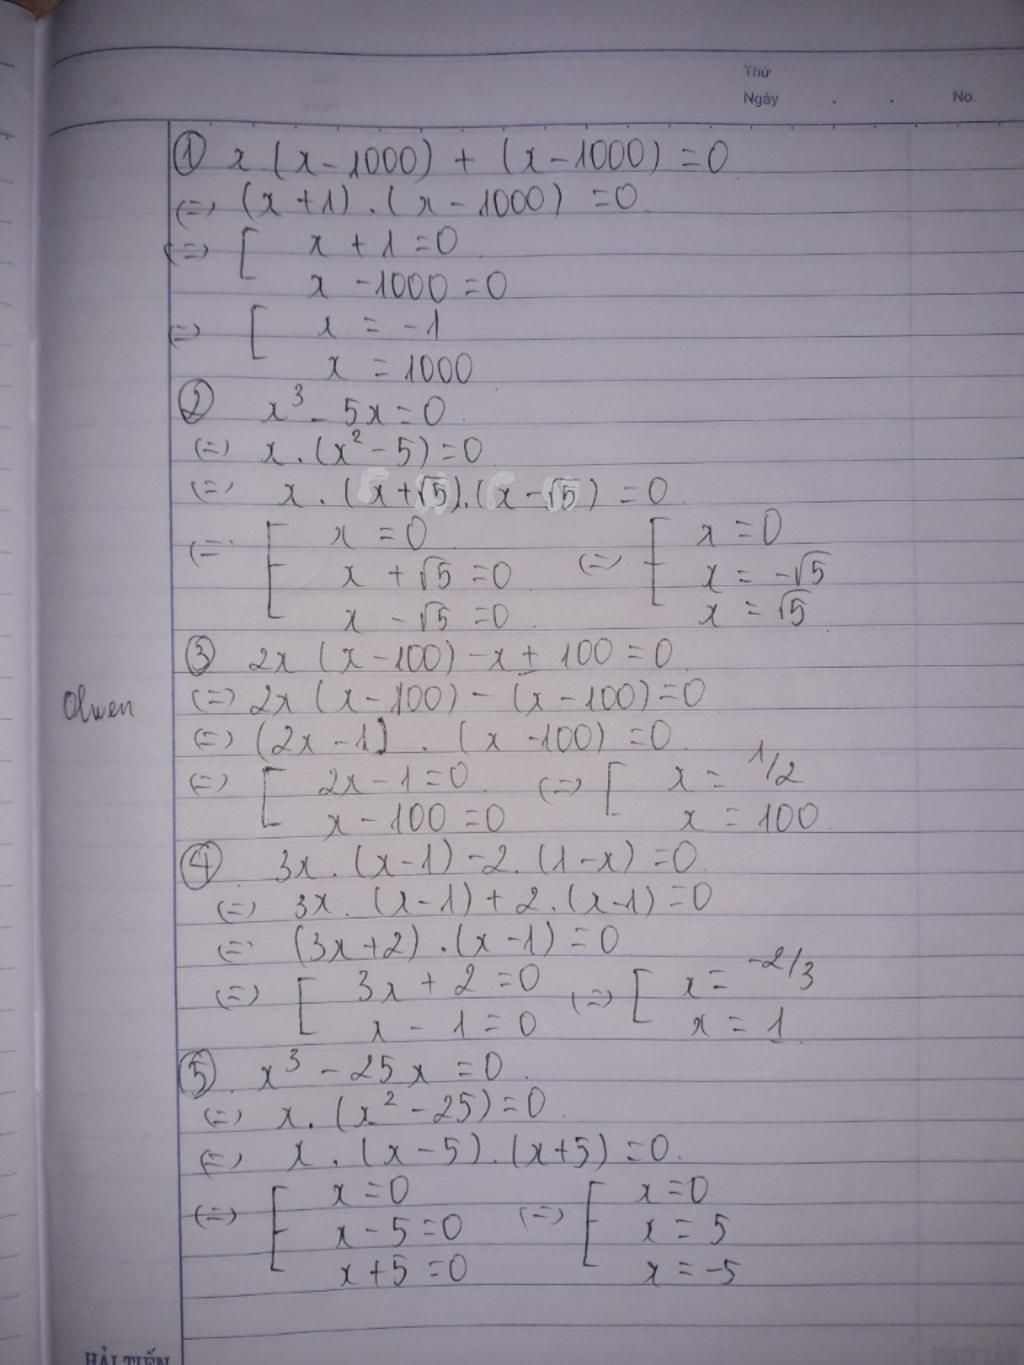 Thứ
Ngày . . No.
① x.(x-1000) + (x-1000) = 0
(=) (x+1).(x-1000) = 0
(=) [ x+1=0
x-1000=0
(=) [ x = -1
x = 1000
② x³ - 5x = 0
(=) x.(x²-5)=0
(=) x.(x+√5).(x-√5) = 0
(=) [ x = 0 (=) [ x = 0
x + √5 = 0 x = -√5
x - √5 = 0 x = √5
③ 2x (x-100) - x + 100 = 0
Olwen
(=) 2x (x-100) - (x-100)=0
(=) (2x-1) . (x-100) = 0
(=) [ 2x-1=0 (=) [ x = 1/2
x-100=0 x = 100
④ 3x.(x-1)-2.(1-x)=0
(=) 3x.(x-1)+2.(x-1)=0
(=) (3x+2).(x-1)=0
(=) [ 3x+2=0 (=) [ x = -2/3
x - 1 = 0 x = 1
⑤ x³ - 25x = 0
(=) x.(x²-25)=0
(=) x.(x-5).(x+5)=0
(=) [ x=0 (=) [ x=0
x-5=0 x = 5
x+5=0 x = -5
HẢI TIẾN